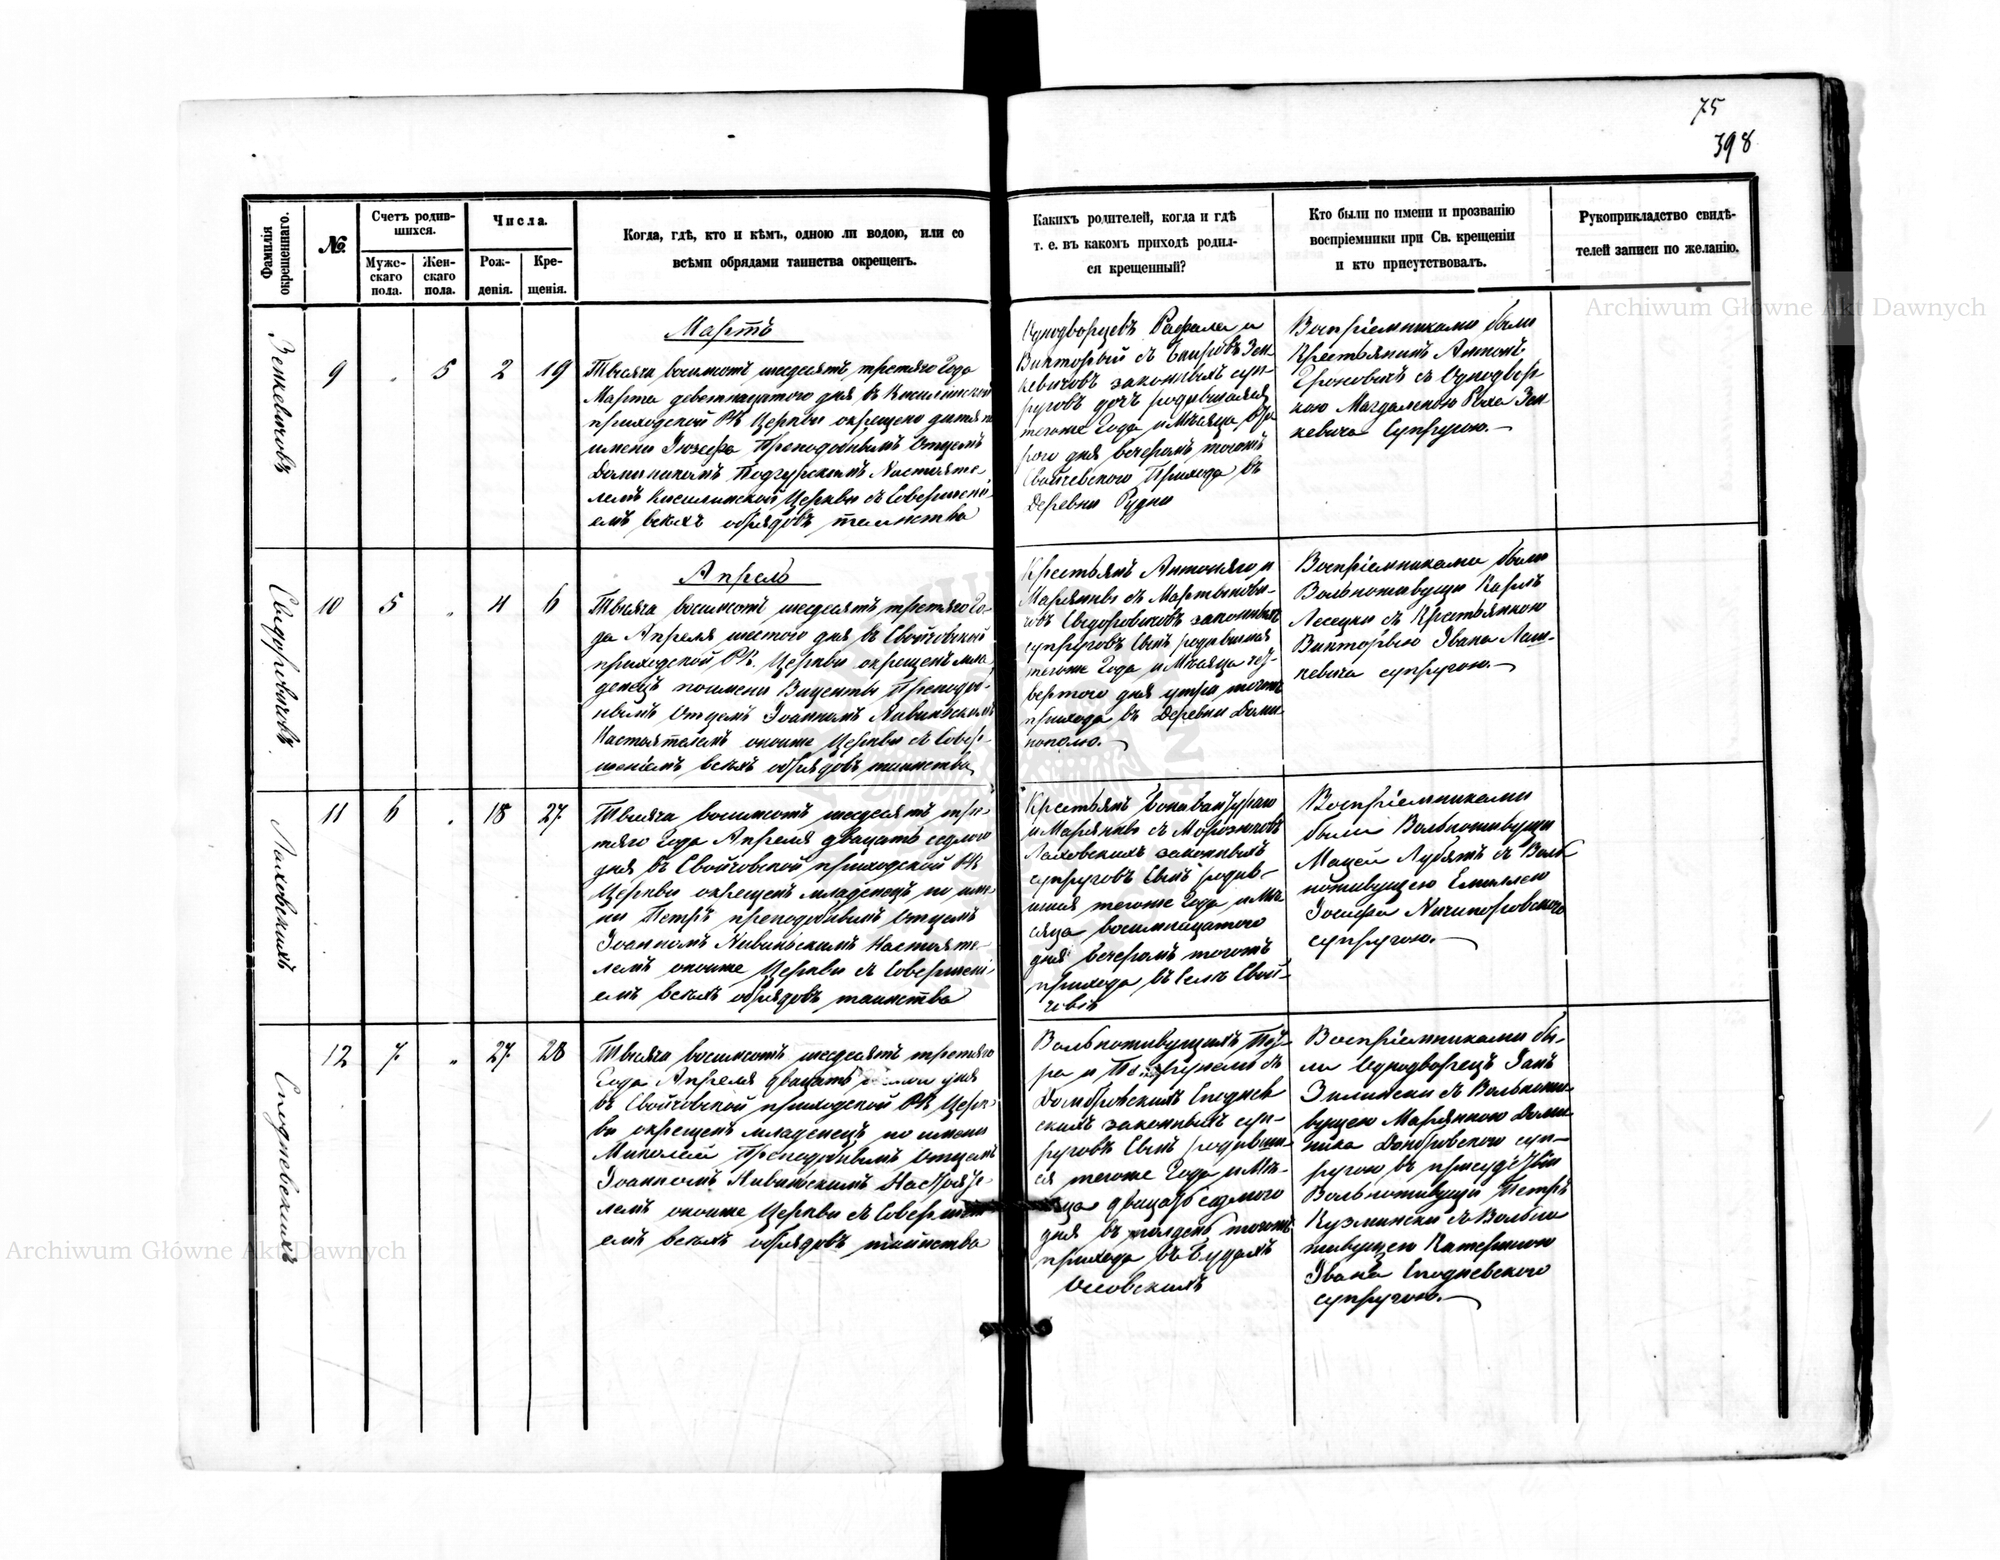 75
398
Фамилія окрещеннаго.
№
Счетъ родив-
шихся.
Мужс-
скаго
пола.
Жен-
скаго
пола.
Числа.
Рож-
денія.
Кре-
щенія.
Когда, гдѣ, кто и кѣмъ, одною ли водою, или со
всѣми обрядами таинства окрещенъ.
Какихъ родителей, когда и гдѣ
т. е. въ какомъ приходѣ родил-
ся крещенный?
Кто были по имени и прозванію
воспріемники при Св. крещеніи
и кто присутствовалъ.
Рукоприкладство свидѣ-
телей записи по желанію.
Archiwum Główne Akt Dawnych
Зенкевичовъ
9 „ 5 2 19
Мартъ
Тысяча восимсотъ шесдесятъ третяго Года
Марта деветнацатого дня въ Киселинской
приходской РК Церквы окрещено дитя по
имени Іюзефа Преподобнымъ Отцемъ
Доминикомъ Подгурскимъ Настояте
лемъ Киселинской Церквы съ Совершені
емъ всехъ обрядовъ таинства
Однодворцевъ Рафала и
Викторыи съ Зен
кевичовъ законныхъ суп
руговъ дочь родившаяся
тогоже Года и Мѣсяца вто
рого дня вечеромъ тогожъ
Свойчевского Прихода въ
Деревни Рудни
Воспріемниками были
Крестьянинъ Антонъ
съ Однодвор
кою Магдаленою Роха Зен
кевича Супругою.
Сидоровичовъ
10 5 „ 4 6
Апрель
Тысяча восимсотъ шесдесятъ третяго Го-
да Апреля шестого дня въ Свойчовской
приходской РК. Церквы окрещенъ мла
денецъ поимени Виценты Преподоб-
нымъ Отцемъ Іоанномъ Нивинскимъ
Настоятелемъ оноиже Церквы съ Совер-
шеніемъ всехъ обрядовъ таинства
Крестьянъ Антоняго и
Марянны съ Мартынови-
човъ Сидоровичовъ законныхъ
супруговъ Сынъ родившися
тогоже Года и Мѣсяца чет-
вертого дня утра тогожъ
прихода въ Деревни Доми
нополю.
Воспріемниками были
Вольноживущи Кароль
Лесецки съ Крестьянкою
Викторыю Ивана Лаш-
кевича супругою.
Лаховскихъ
11 6 „ 18 27
Тысяча восимсотъ шесдесятъ тре-
тяго Года Апреля двацатъ седмого
дня въ Свойчовской приходской РК
Церквы окрещенъ младенецъ по име
ни Петръ преподобнымъ Отцемъ
Іоанномъ Нивинскимъ Настояте-
лемъ оноиже Церквы съ Совершені
емъ всехъ обрядовъ таинства
Крестьянъ Бонавантураго
и Марянны съ Морозюковъ
Лаховскихъ законныхъ
супруговъ Сынъ родив-
шися тогоже Года и Мѣ
сяца восимнацатого
дня вечеромъ тогожъ
прихода въ Селѣ Свой-
човѣ
Воспріемниками
были Вольноживущи
Мацей съ Воль
ноживущею Емилею
Іосифа Ничипоровского
супругою.
Споднѣвскихъ
12 7 „ 27 28
Тысяча восимсотъ шесдесятъ третяго
Года Апреля двацатъ дня
въ Свойчовской приходской РК Церк-
вы окрещенъ младенецъ по имени
Миколай Преподобнымъ Отцемъ
Іоанномъ Нивинскимъ Настояте-
лемъ оноиже Церквы съ Совершені
емъ всехъ обрядовъ таинства
Вольноживущихъ
ра и съ
Домбровскихъ Споднев
скихъ законныхъ суп-
руговъ Сынъ родивши-
ся тогоже Года и Мѣ-
сяца двацатъ седмого
дня въ полдень тогожъ
прихода въ Будахъ
Осовскихъ
Воспріемниками бы-
ли Однодворецъ Іанъ
Зилински съ Вольножи-
вущею Марянною Доми
ника Домбровского суп-
ругою въ присудствіи
Вольноживущи Петръ
Кузмински съ Вольно
живущею Катериною
Ивана Сподневского
супругою.
Archiwum Główne Akt Dawnych